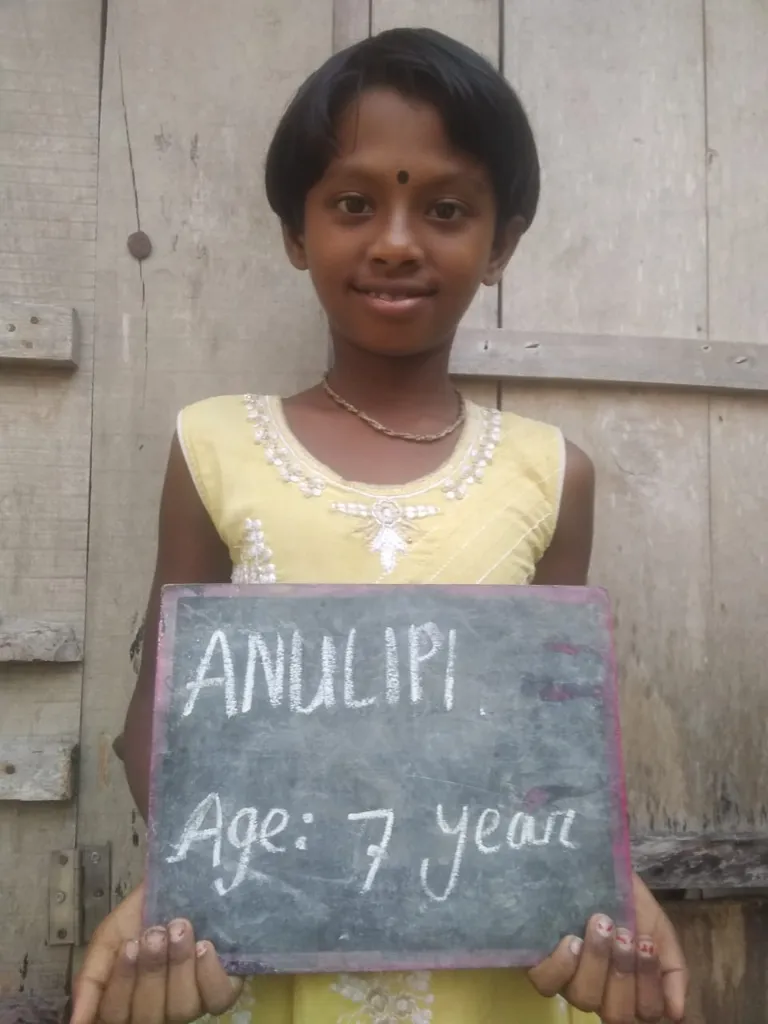 ANULIPI.
Age: 7 year